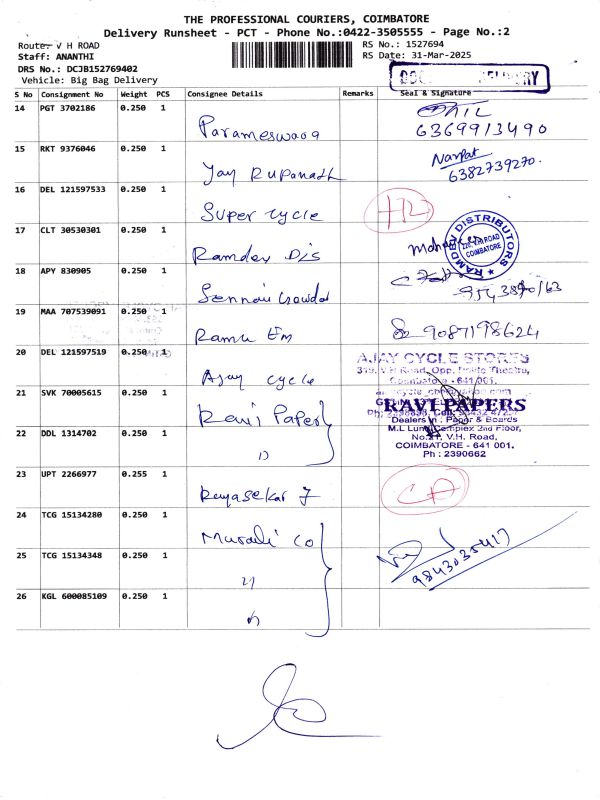 THE PROFESSIONAL COURIERS, COIMBATORE
Delivery Runsheet - PCT - Phone No.:0422-3505555 - Page No.:2
Route: V H ROAD RS No.: 1527694
Staff: ANANTHI RS Date: 31-Mar-2025
DRS No.: DCJB152769402
Vehicle: Big Bag Delivery
S No Consignment No Weight PCS Consignee Details Remarks Seal & Signature
14 PGT 3702186 0.250 1
6369913490
15 RKT 9376046 0.250 1 Jay Rupanath Narpat
6382739270.
16 DEL 121597533 0.250 1 Super cycle
17 CLT 30530301 0.250 1 Ramdev Dis RAMDEV DISTRIBUTORS
COIMBATORE
18 APY 830905 0.250 1
19 MAA 707539091 0.250 1 Ramu Em 9087198624
20 DEL 121597519 0.250 1 Ajay cycle AJAY CYCLE STORES
Coimbatore - 641 001.
21 SVK 70005615 0.250 1 Ravi Paper RAVI PAPERS
Dealers in : Paper & Boards
22 DDL 1314702 0.250 1 1) M.L Luna Complex 2nd Floor,
No.21, V.H. Road,
COIMBATORE - 641 001.
Ph : 2390662
23 UPT 2266977 0.255 1
24 TCG 15134280 0.250 1 Murali Co
25 TCG 15134348 0.250 1 9843035417
26 KGL 600085109 0.250 1